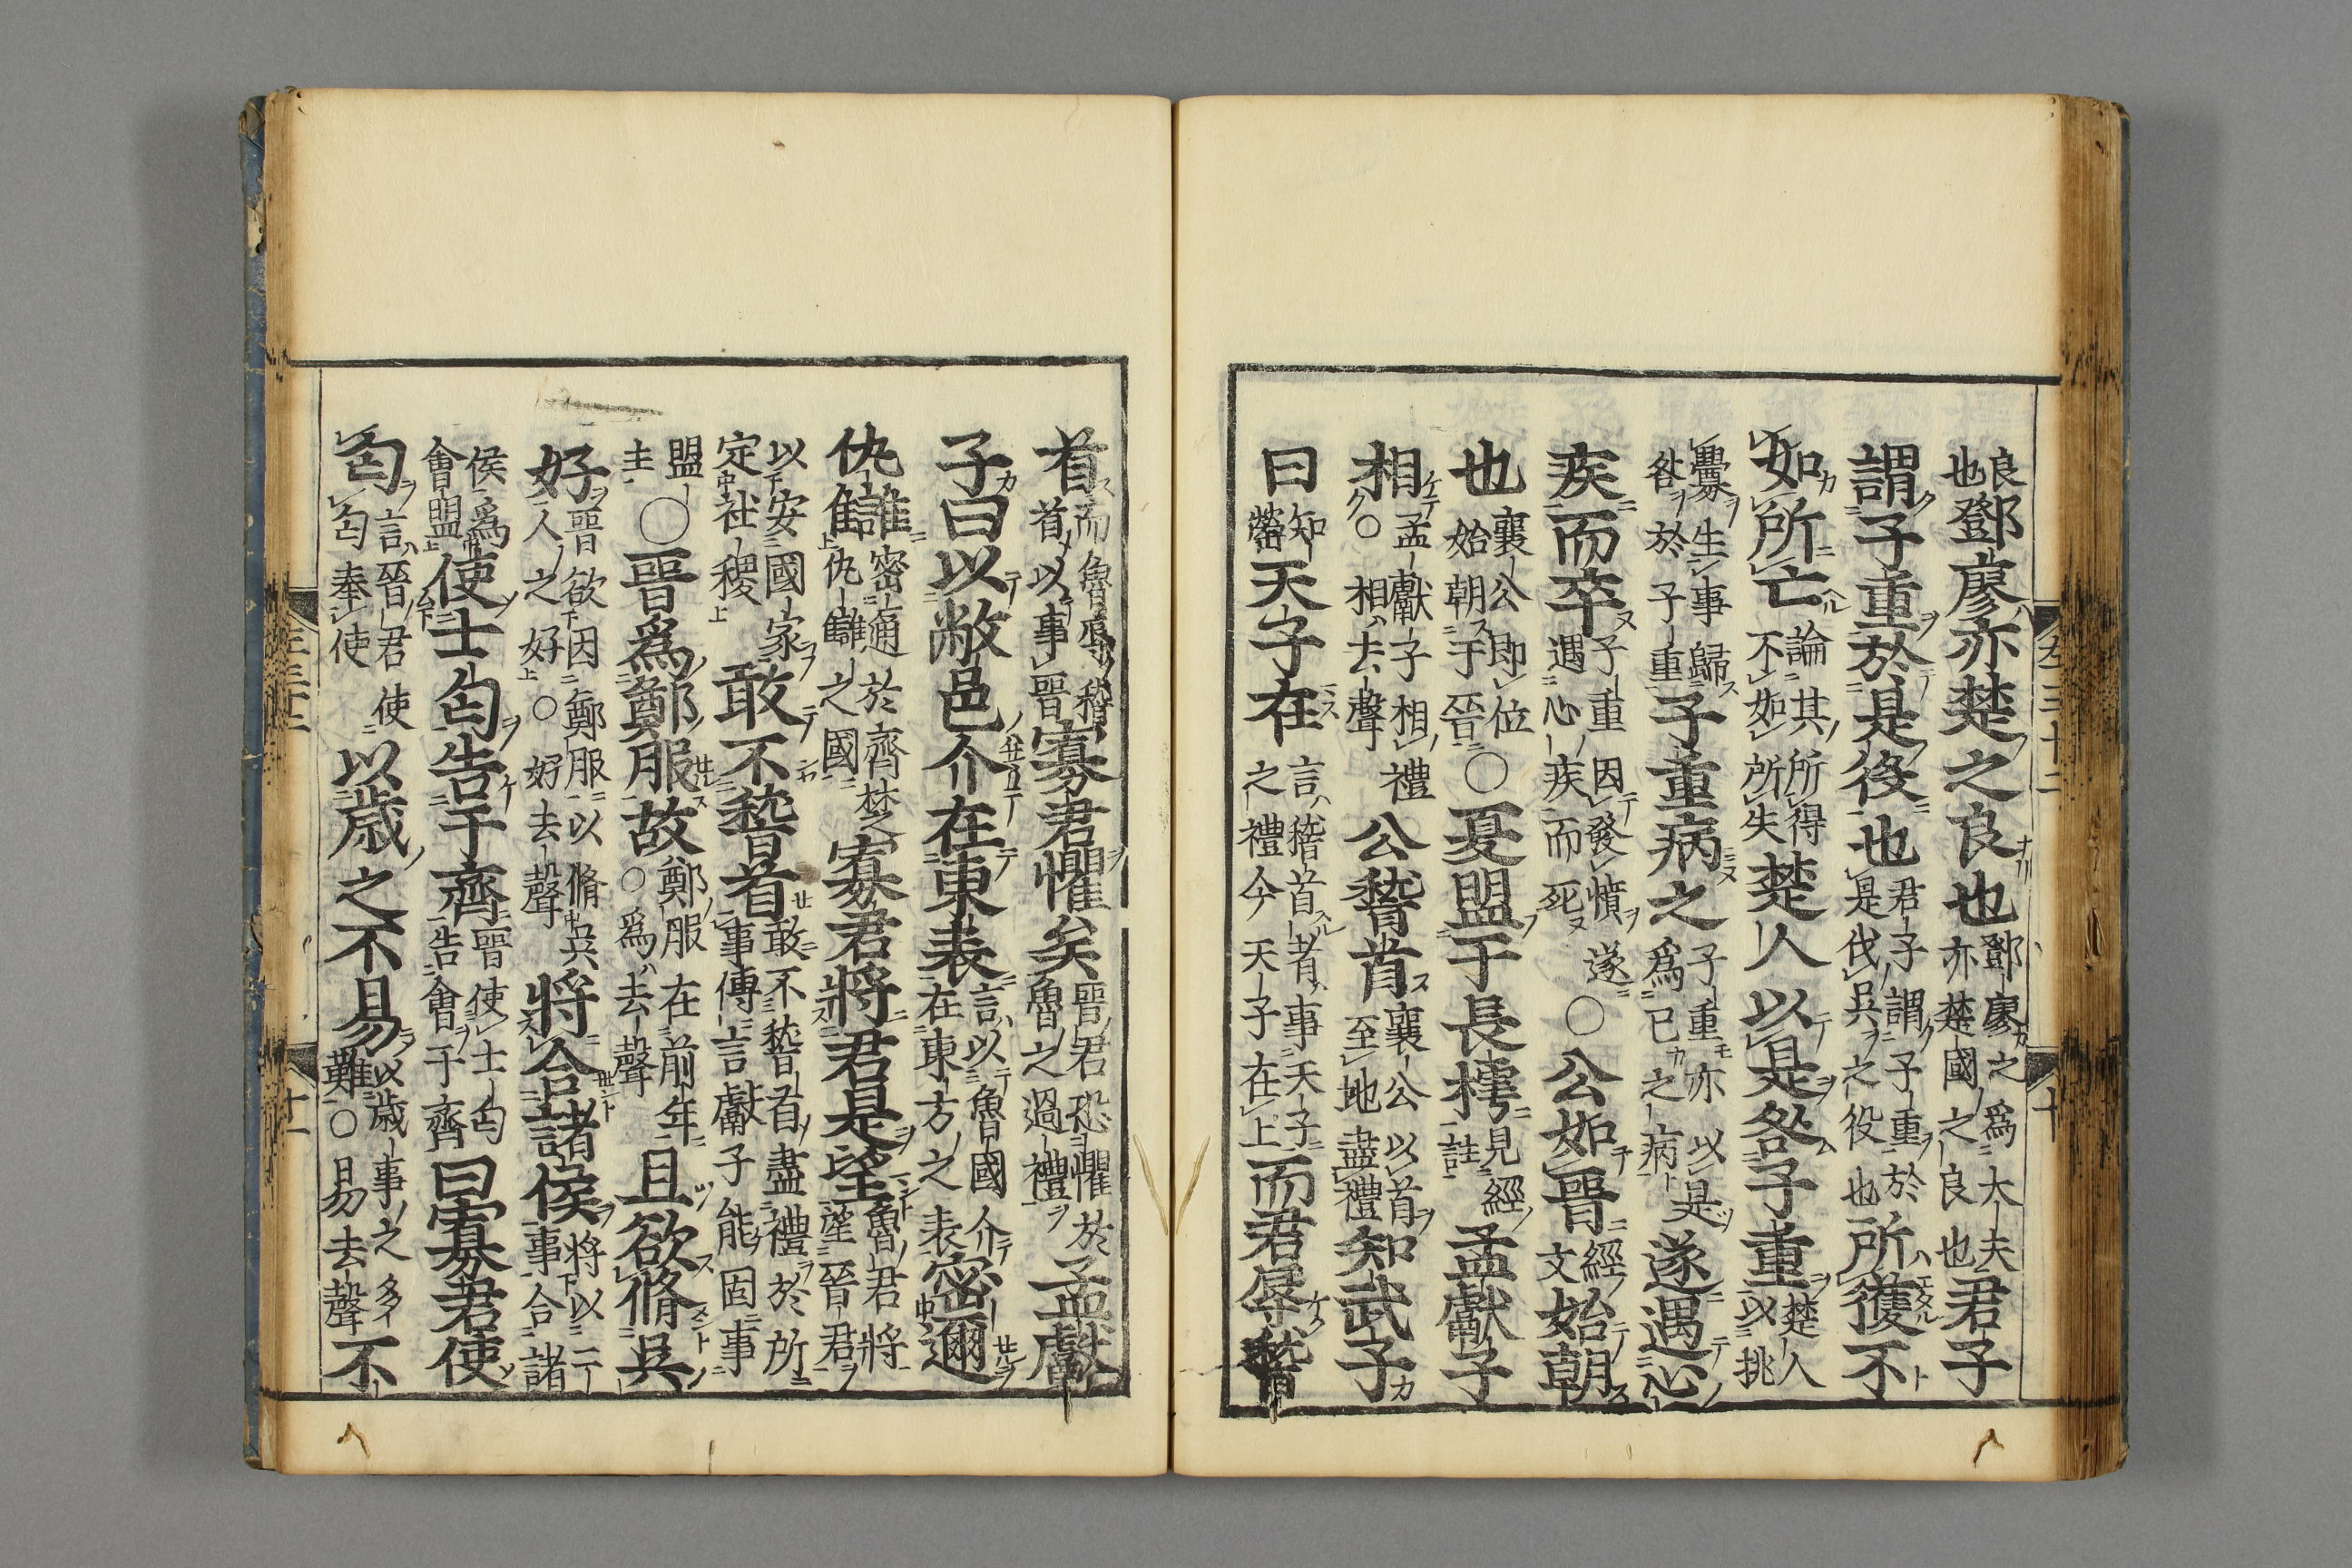 良也鄧廖亦楚之良也鄧廖之爲大夫亦楚國之良也君子
謂子重於是役也君子謂子重於是伐吳之役也所獲不
如所亡論其所得不如所失楚人以是咎子重楚人以挑
釁生事歸咎於子重子重病之子重亦以是爲己之病遂遇心
疾而卒子重因發憤遂遇心疾而死○公如晉經文始朝
也襄公即位始朝于晉○夏盟于長樗見經註孟獻子
相孟獻子相禮○相去聲公稽首襄公以首至地盡禮知武子
曰知罃天子在言稽首者事天子之禮今天子在上而君辱稽
首而魯辱稽首以事晉寡君懼矣晉君恐懼於魯之過禮孟獻
子曰以敝邑介在東表言以魯國介在東方之表密邇
仇讎密邇於齊楚仇讎之國寡君將君是望魯君將望晉君
以安國家定社稷敢不稽首敢不稽首盡禮於所事傳言獻子能固事
盟主○晉爲鄭服故鄭服在前年○爲去聲且欲脩吳
好晉欲因鄭服以脩吳人之好○好去聲將合諸侯將以二事合諸
侯爲會盟使士匄告于齊晉使士匄告會于齊曰寡君使
匄言晉君使匄奉使以歲之不易以歲事之多難○易去聲不